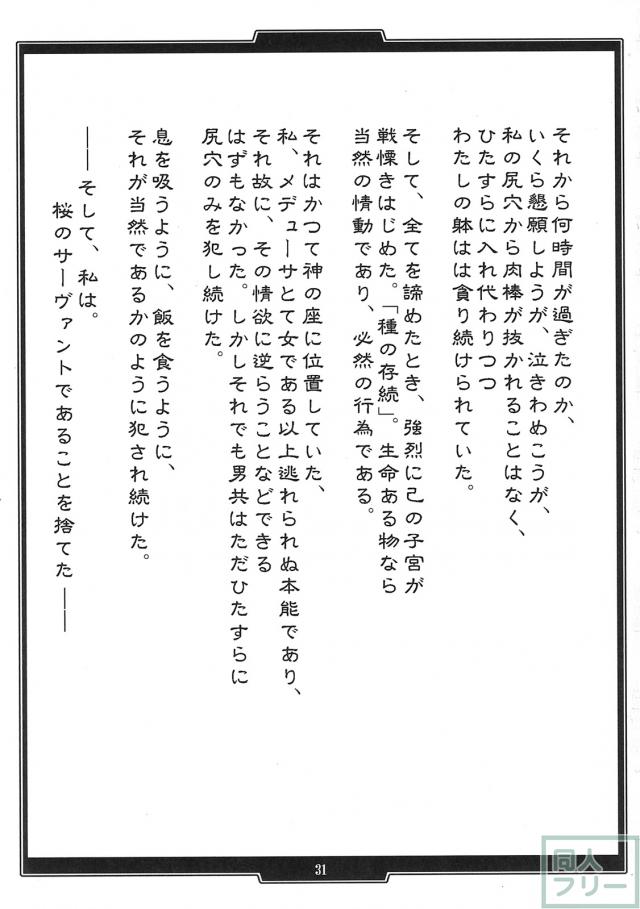 それから何時間が過ぎたのか、
いくら懇願しようが、泣きわめこうが、
私の尻穴から肉棒が抜かれることはなく、
ひたすらに入れ代わりつつ
わたしの躰はは貪り続けられていた。
そして、全てを諦めたとき、強烈に己の子宮が
戦慄きはじめた。「種の存続」。生命ある物なら
当然の情動であり、必然の行為である。
それはかつて神の座に位置していた、
私、メデューサとて女である以上逃れられぬ本能であり、
それ故に、その情欲に逆らうことなどできる
はずもなかった。しかしそれでも男共はただひたすらに
尻穴のみを犯し続けた。
息を吸うように、飯を食うように、
それが当然であるかのように犯され続けた。
――そして、私は。
桜のサーヴァントであることを捨てた――
31
同人
フリー